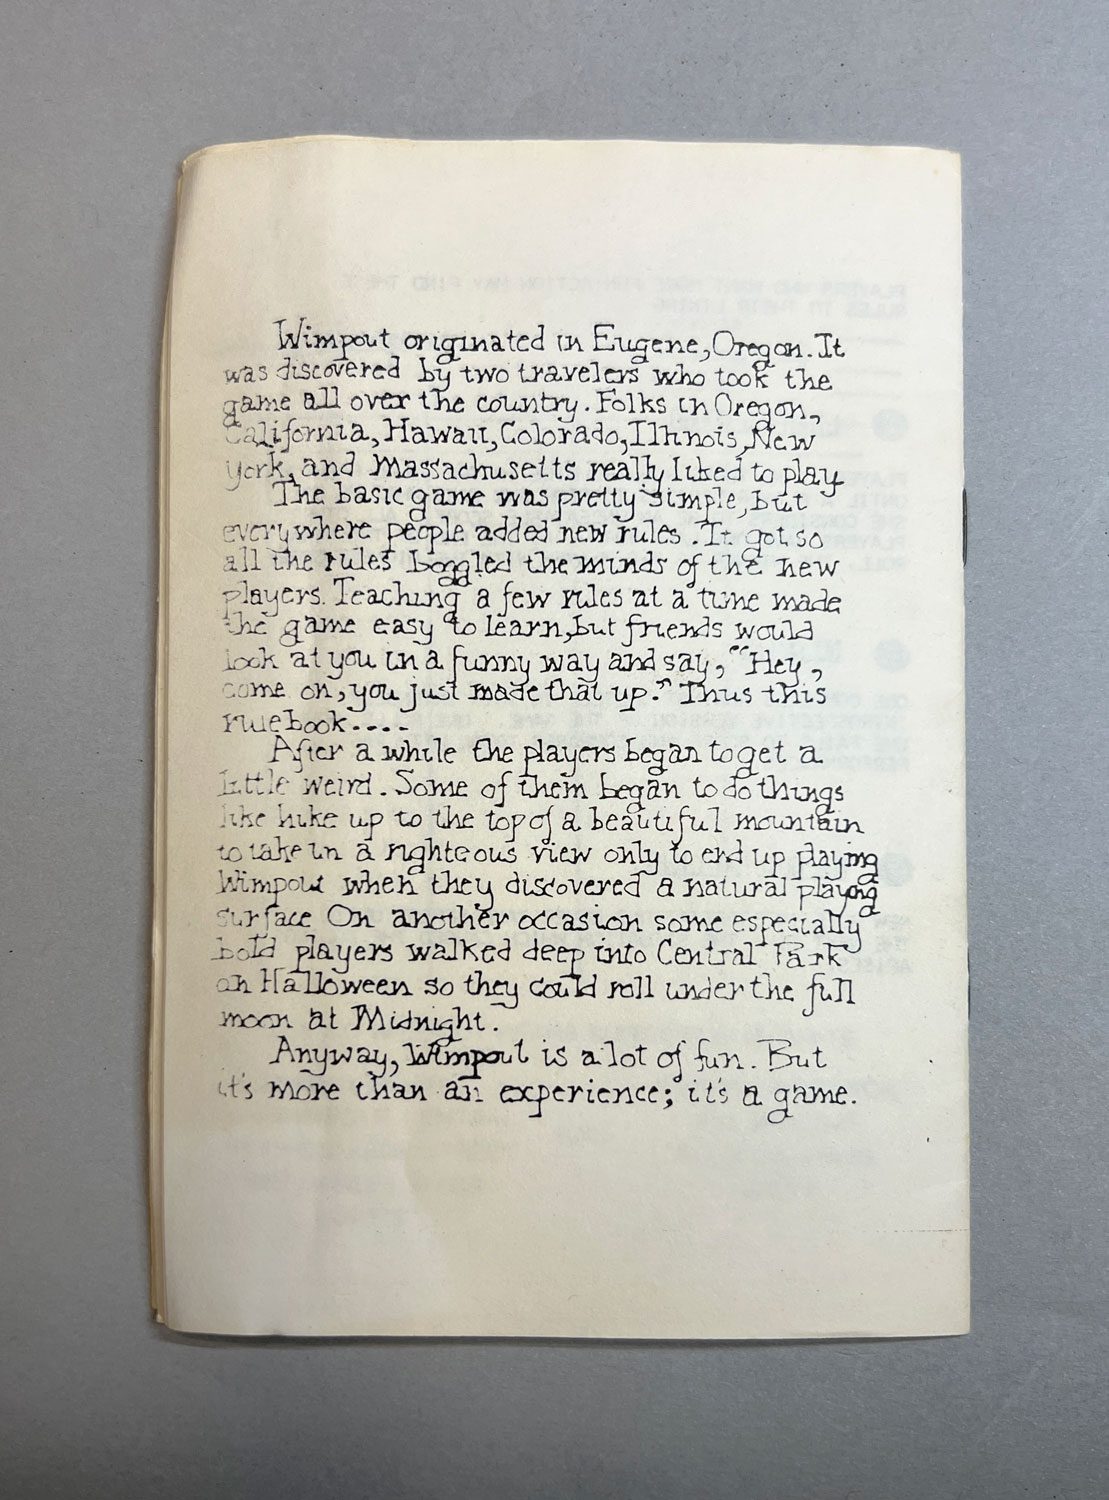 Wimpout originated in Eugene, Oregon. It
was discovered by two travelers who took the
game all over the country. Folks in Oregon,
California, Hawaii, Colorado, Illinois, New
York, and Massachusetts really liked to play
The basic game was pretty simple, but
everywhere people added new rules. It got so
all the rules boggled the minds of the new
players. Teaching a few rules at a time made
the game easy to learn, but friends would
look at you in a funny way and say, "Hey,
come on, you just made that up." Thus this
rulebook....
After a while the players began to get a
little weird. Some of them began to do things
like hike up to the top of a beautiful mountain
to take in a righteous view only to end up playing
Wimpout when they discovered a natural playing
surface On another occasion some especially
bold players walked deep into Central Park
on Halloween so they could roll under the full
moon at Midnight.
Anyway, Wimpout is a lot of fun. But
it's more than an experience; it's a game.